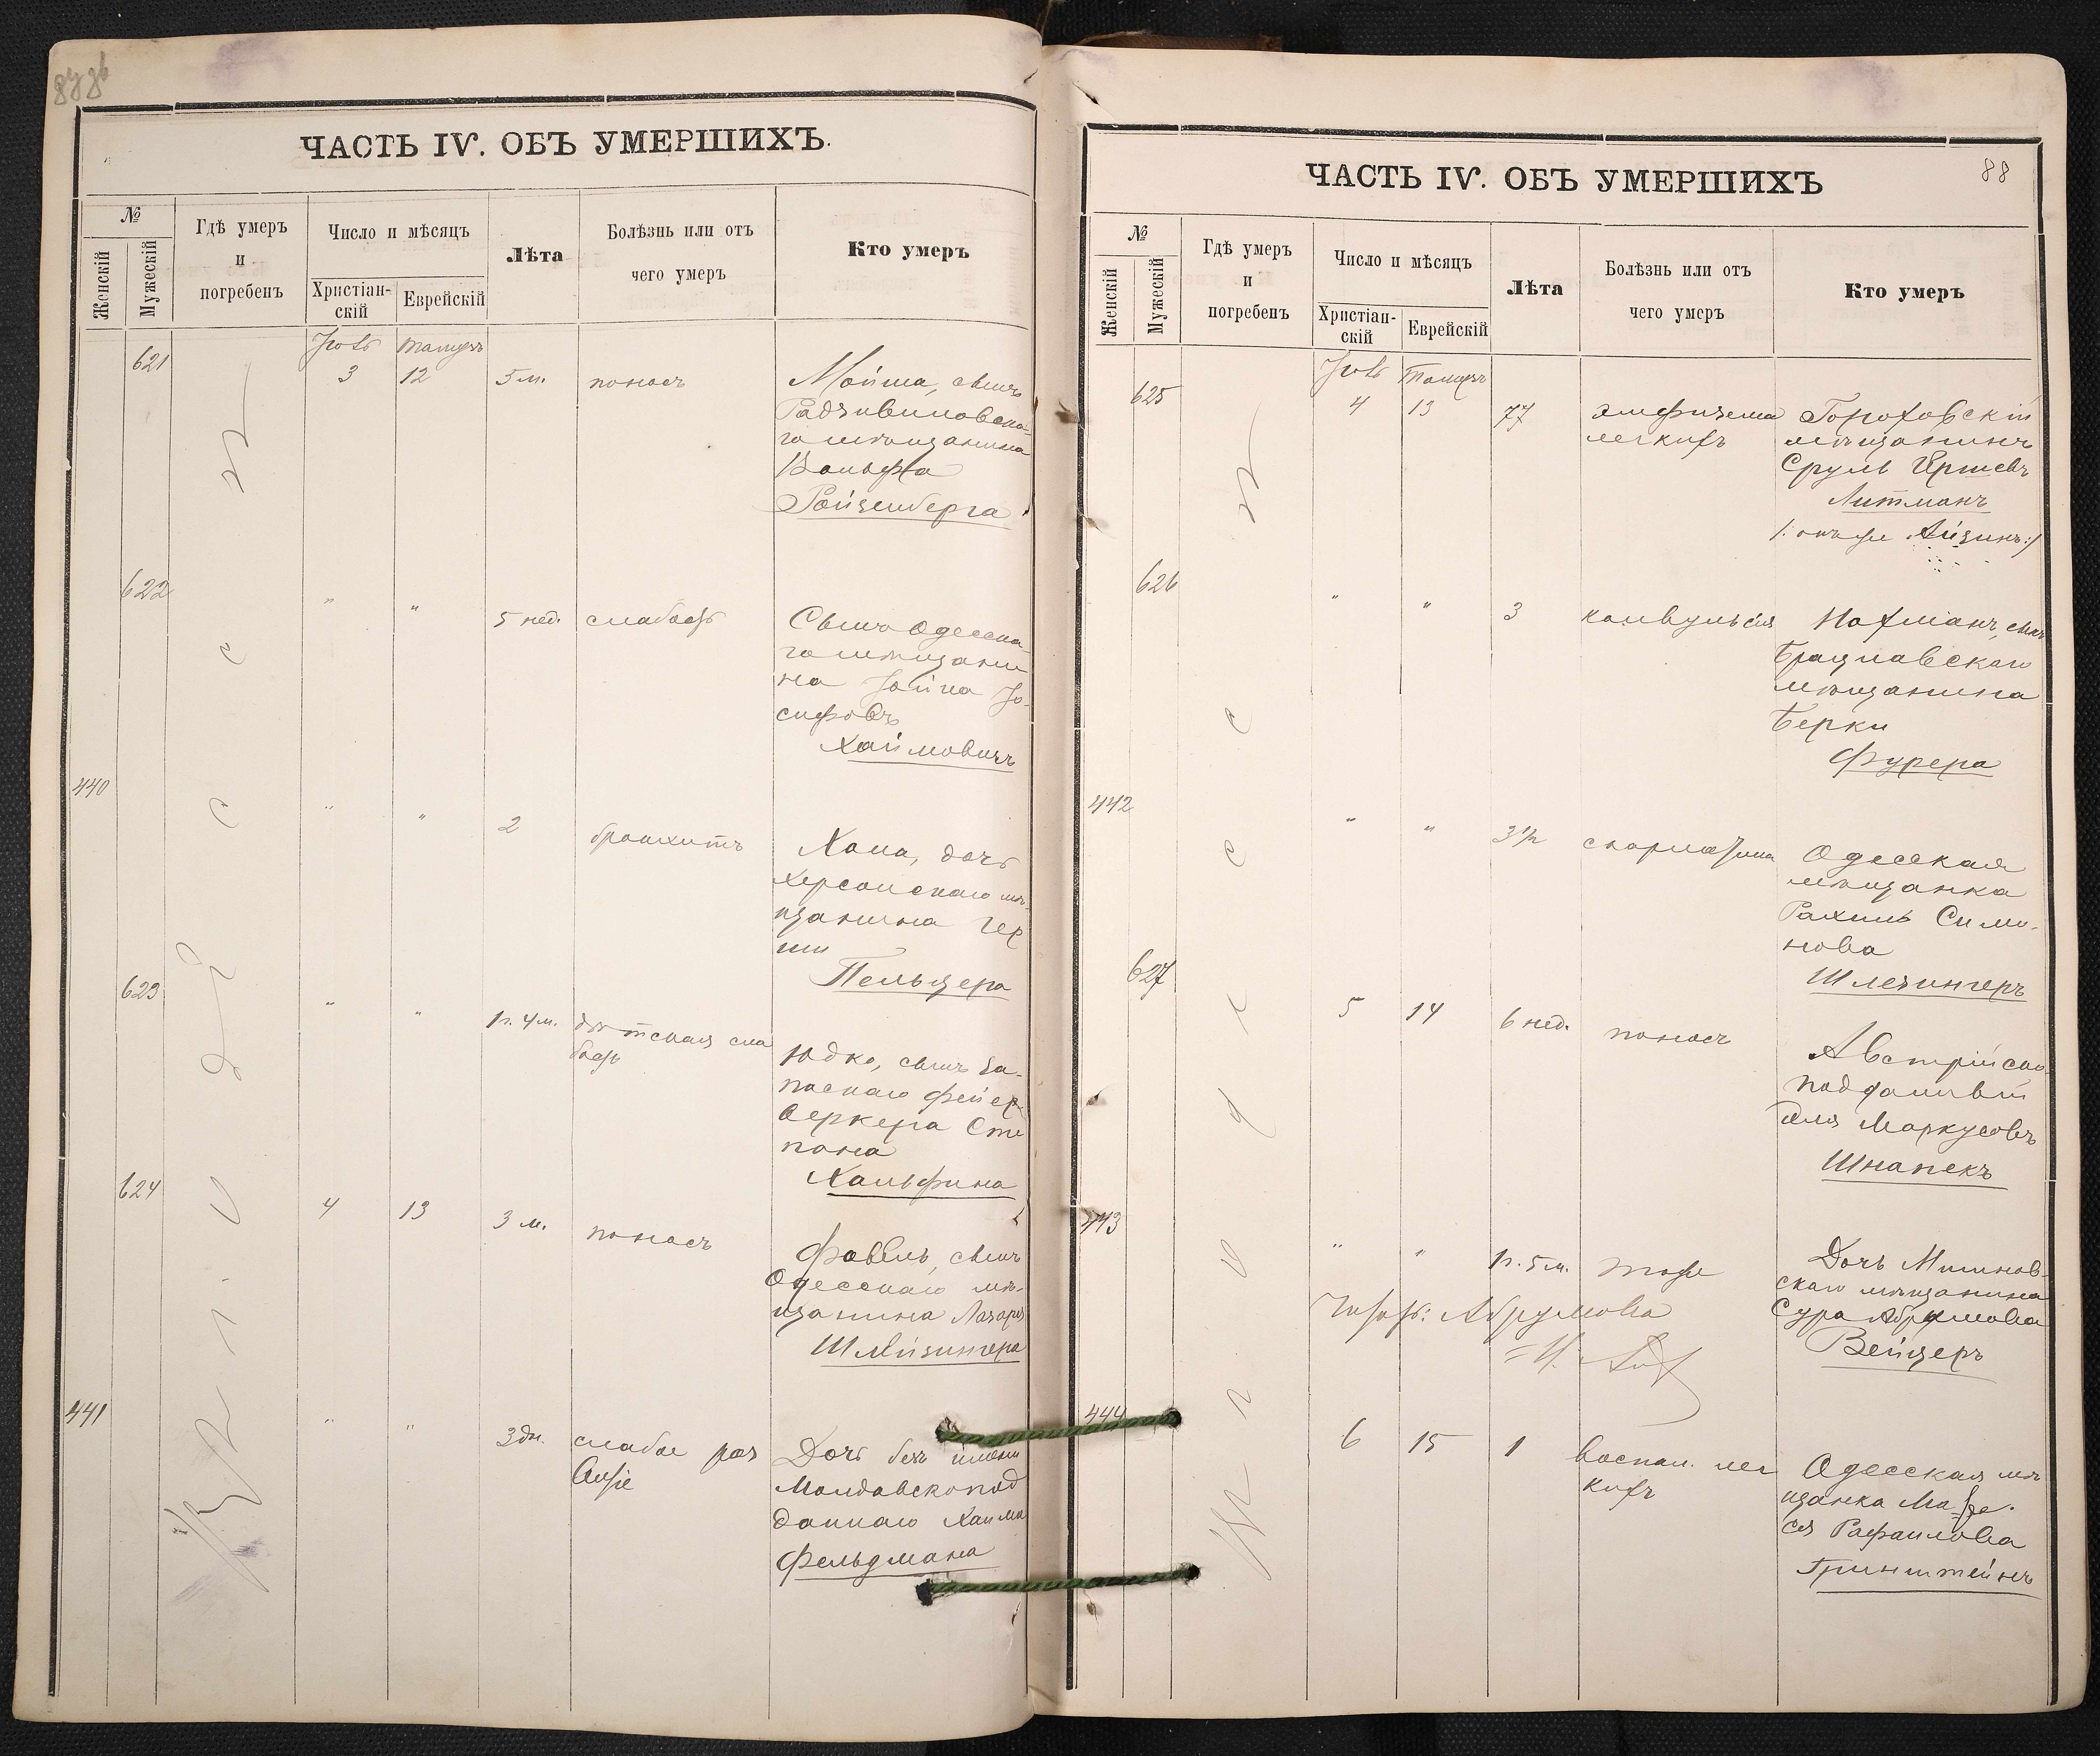 ЧАСТЬ IV. ОБЪ УМЕРШИХЪ.
№
Женскій
Мужескій
Гдѣ умеръ
и
погребенъ
Число и мѣсяцъ
Христіан-
скій
Еврейскій
Лѣта
Болѣзнь или отъ
чего умеръ
Кто умеръ
Въ г. Одессѣ
621
Іюль
3
Тамузъ
12
5 м.
поносъ
Мойша, сынъ
Радзивиловска-
го мѣщанина
Вольфа
Ройзенберга
622
"
"
5 нед.
слабость
Сынъ Одесска-
го мѣщани
на Іойна Іо-
сифовъ
Хаймовичъ
440
"
"
2
бронхитъ
Хана, дочь
Херсонскаго мѣ-
щанина Гер
ши
Пельцера
623
"
"
1 г. 4 м.
дѣтская сла
бость
Юдко, сынъ за-
паснаго фейер-
веркера Сте
пана
Хальфина
624
4
13
3 м.
поносъ
Фавель, сынъ
Одесскаго мѣ-
щанина Лазаря
Шлейзингера
441
"
"
3 дн.
слабое раз
витіе
Дочь безъ имени
Молдавскопод
даннаго Хаима
Фельдмана
ЧАСТЬ IV. ОБЪ УМЕРШИХЪ
88
№
Женскій
Мужескій
Гдѣ умеръ
и
погребенъ
Число и мѣсяцъ
Христіан-
скій
Еврейскій
Лѣта
Болѣзнь или отъ
чего умеръ
Кто умеръ
Въ г. Одессѣ
625
Іюль
4
Тамузъ
13
77
эмфизема
легкихъ
Гороховскій
мѣщанинъ
Сруль Гершевъ
Литманъ
/: онъ же Айзинъ :/
626
"
"
3
конвульсія
Нахманъ, сынъ
Брацлавскаго
мѣщанина
Берки
Фурера
442
"
"
3 1/2
скарлатина
Одесская
мѣщанка
Рахиль Симо-
нова
Шлезингеръ
627
5
14
6 нед.
поносъ
Австрійско-
подданный
Маркусовъ
Шнапекъ
443
"
"
1 г. 5 м.
тоже
Дочь
скаго мѣщанина
Сура Абрумова
Вейцеръ
Абрумова
444
6
15
1
воспал. лег
кихъ
Одесская мѣ
щанка
ся Рафаилова
Гринштейнъ